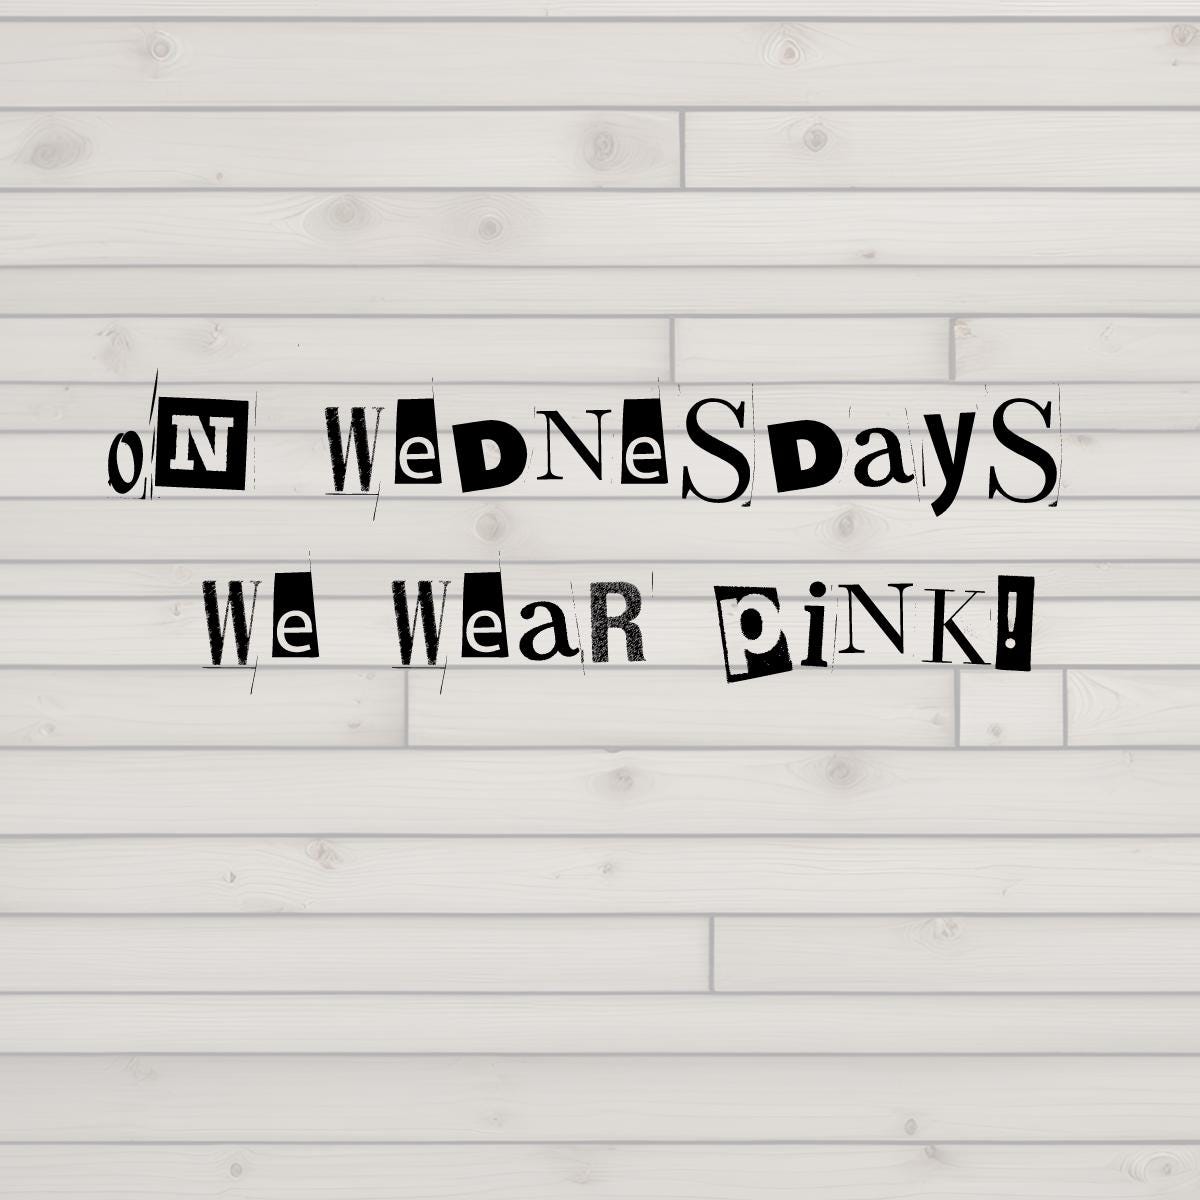 oN WeDNeSDayS
We WeaR piNK!